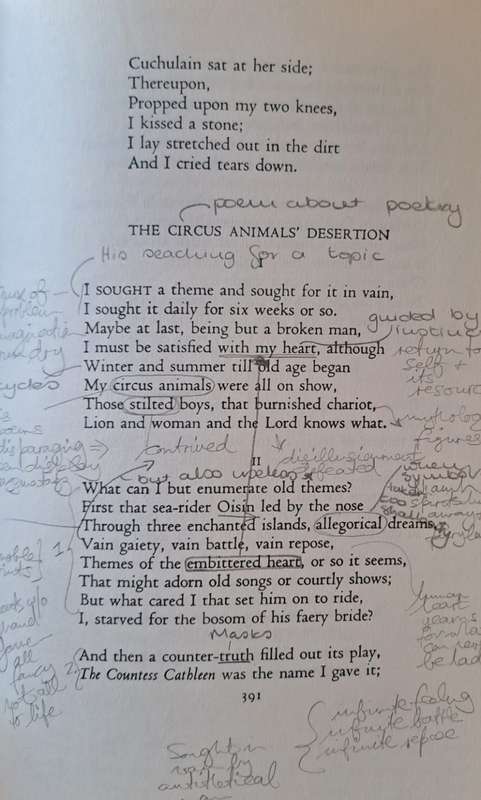 Cuchulain sat at her side;
Thereupon,
Propped upon my two knees,
I kissed a stone;
I lay stretched out in the dirt
And I cried tears down.
poem about poetry
THE CIRCUS ANIMALS' DESERTION
His seaching for a topic
I
I SOUGHT a theme and sought for it in vain,
I sought it daily for six weeks or so.
Maybe at last, being but a broken man,
guided by
I must be satisfied with my heart, although
return to
Winter and summer till old age began
self +
its
My circus animals were all on show,
cycles
Those stilted boys, that burnished chariot,
Lion and woman and the Lord knows what.
figures
contrived
disillusionment
defeated
II
but also useless
What can I but enumerate old themes?
First that sea-rider Oisin led by the nose
Through three enchanted islands, allegorical dreams,
Vain gaiety, vain battle, vain repose,
Themes of the embittered heart, or so it seems,
That might adorn old songs or courtly shows;
But what cared I that set him on to ride,
I, starved for the bosom of his faery bride?
human
heart
yearns
Masks
And then a counter-truth filled out its play,
The Countess Cathleen was the name I gave it;
to life
391
infinite feeling
infinite battle
infinite repose
Sought in
vain by
antithetical